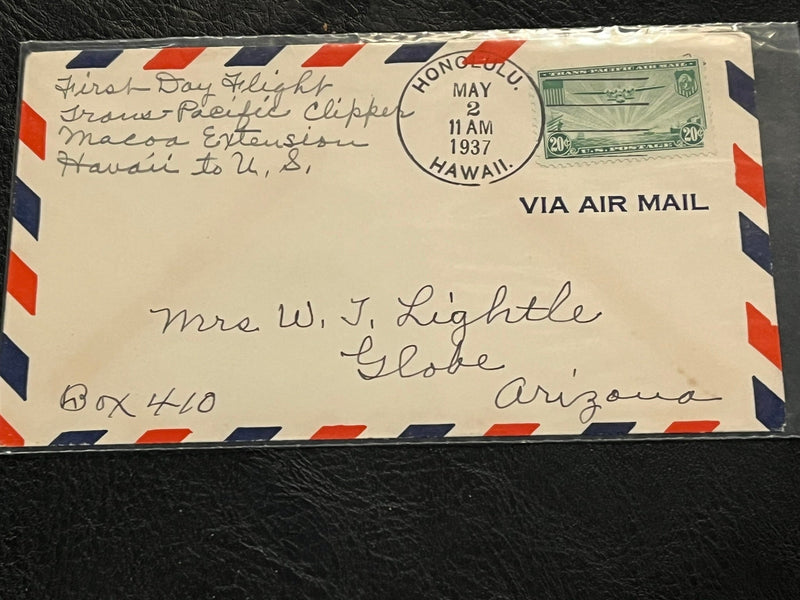 First Day Flight
Trans-Pacific Clipper
Macoa Extension
Havaii to U. S.
HONOLULU.
MAY
2
11 AM
1937
HAWAII.
TRANS-PACIFIC AIR MAIL
20¢ U.S. POSTAGE 20¢
VIA AIR MAIL
Mrs W. T. Lightle
Globe
Box 410 Arizona